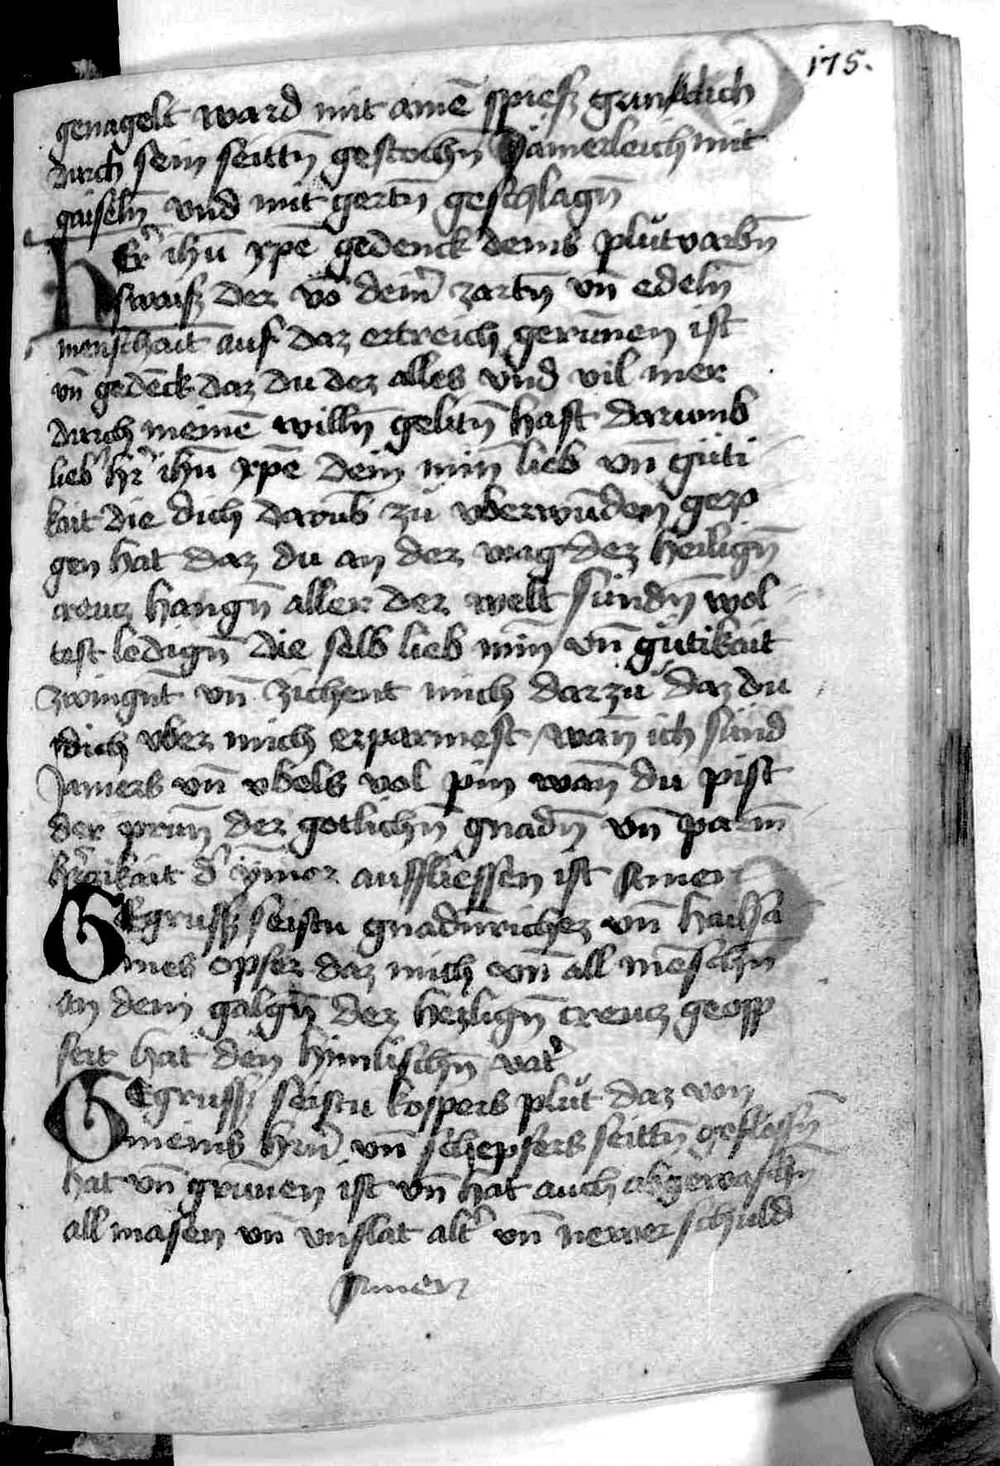 175.
genagelt ward mit aimē spiesz grimklich
durch sein seittn̄ gestochn̄ Jämerleich mit
gaiseln̄ vnd mit gertn̄ geschlagn̄
HEr ihū xpē gedenck deins plůtvarbn̄
swaisz der vō deiner zartn̄ vn̄ edeln̄
menschait auf daz ertreich gerūnen ist
vn̄ gedēck daz du dez alles vnd vil mer
durch meinē willn̄ gelitn̄ hast darumb
lieber hr̄ ihū xpē dein min̄ lieb vn̄ güti
kait die dich darūb zů vberwūden gezo
gen hat daz du an der wag dez heilign̄
creucz hangn̄ aller der welt sündn̄ wol
test ledign̄ die selb lieb min̄ vn̄ gütikait
zwingnt vn̄ zichent mich darzů daz du
dich vber mich erparmest / wan̄ ich sünd
Jamers vn̄ vbels vol pin wan̄ du pist
der prun̄ der gotlichn̄ gnadn̄ vn̄ parm̄
hērzikait der ȳmer ausfliessen ist Amen
GEgrusst seistu gnadnrichez vn̄ hailsa
mes opfer daz mich vn̄ all mēschn̄
an dem galgn̄ dez heyligen creucz geopf
fert hat den himlischn̄ vater
GEgrusst seistu kospers plůt daz von
meins hrn̄ vn̄ schepfers seittn̄ geflossn̄
hat vn̄ grunnen ist vn̄ hat auch abgewaschn̄
all masen vn̄ vnflat alter vn̄ newer schuld
Amen